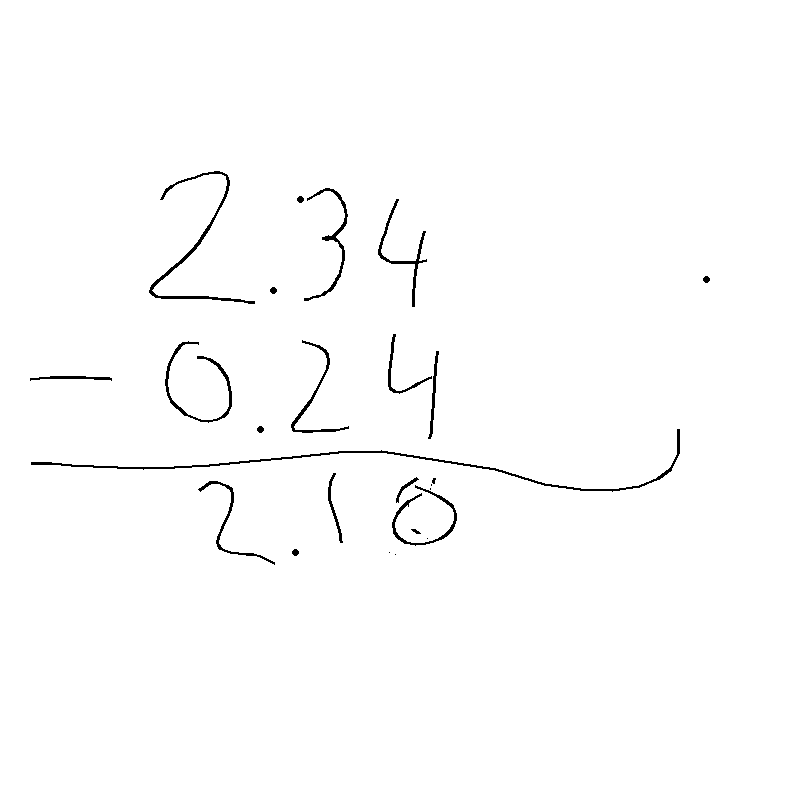 2.34
- 0.24
2.10